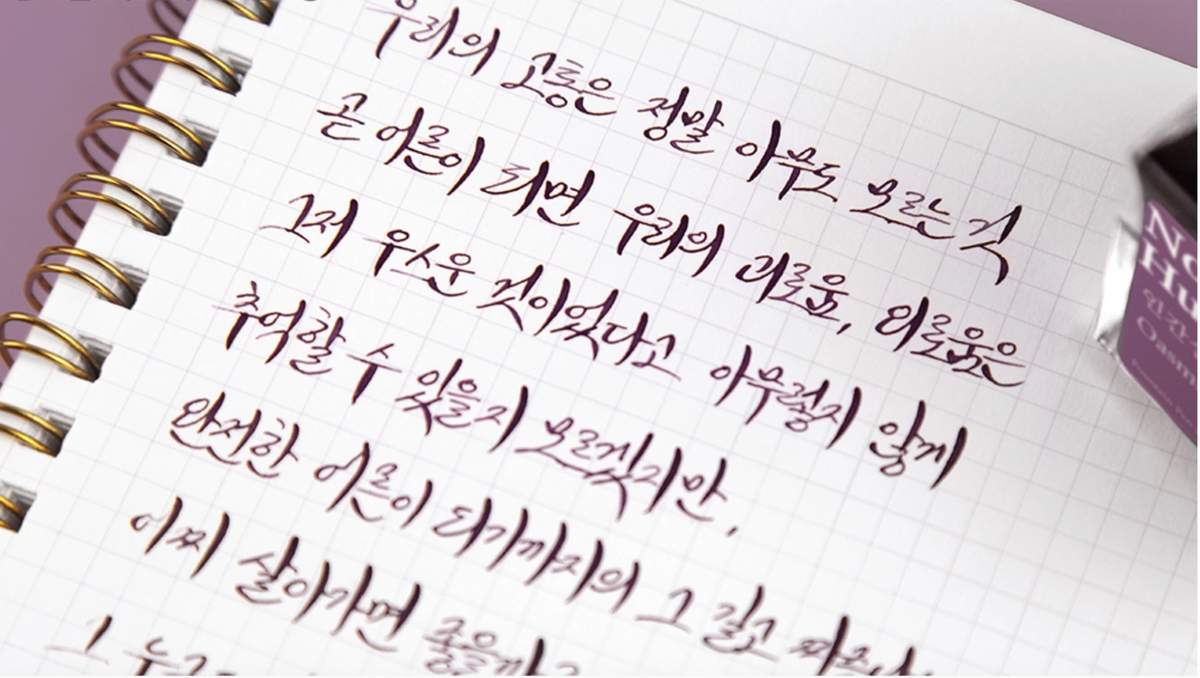 우리의 고통은 정말 아무도 모르는 것
곧 어른이 되면 우리의 괴로움, 외로움은
그저 우스운 것이었다고 아무렇지 않게
추억할 수 있을지 모르겠지만,
완전한 어른이 되기까지의 그 길고
어찌 살아가면 좋을까
그
No
Hu
인간
Oasm